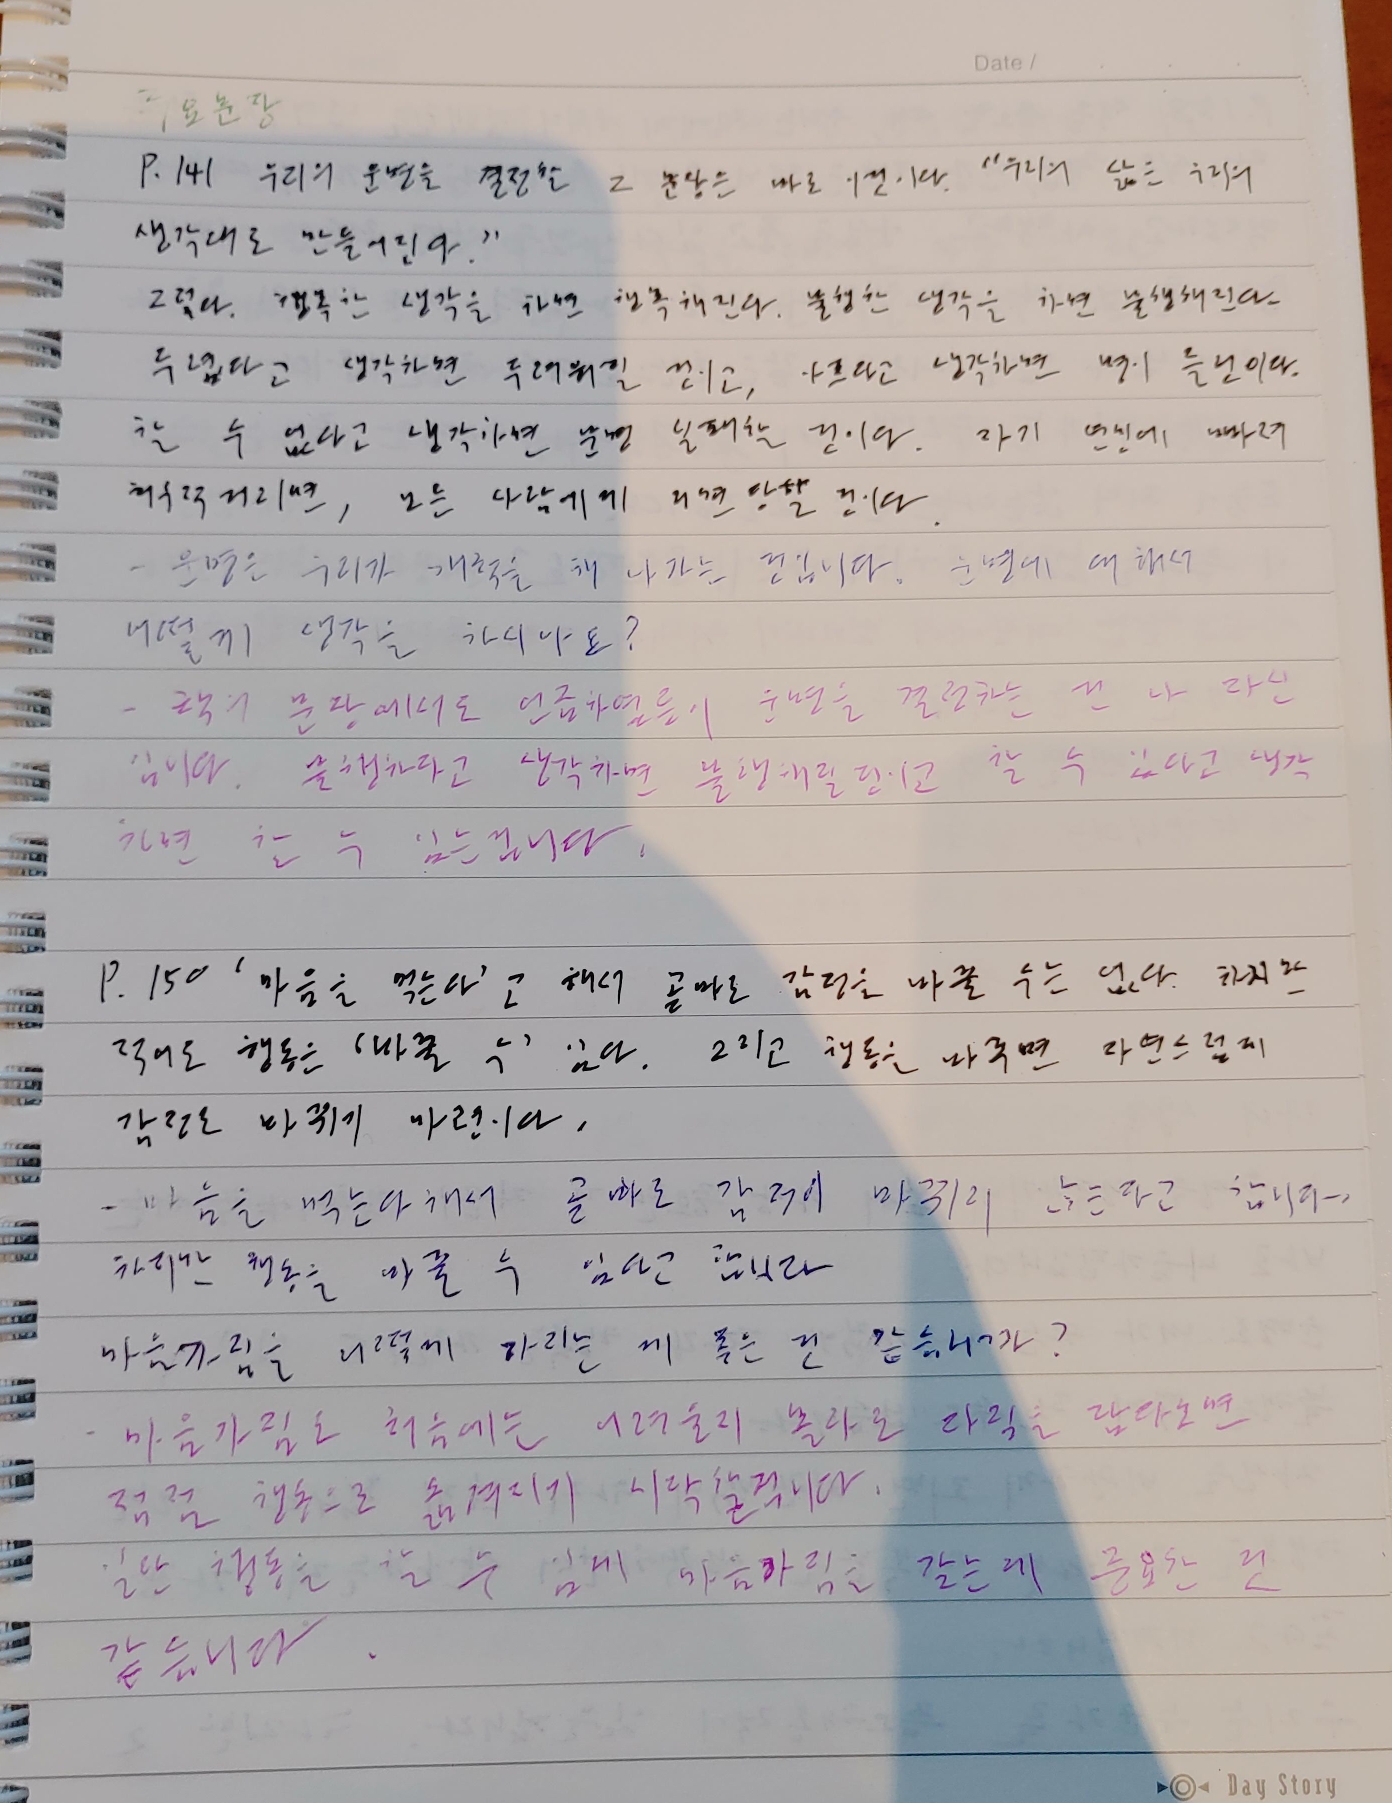 Date /
주요문장
P. 141 우리의 운명을 결정할 그 문장은 바로 이것이다. "우리의 삶은 우리의
생각대로 만들어진다."
그렇다. 행복한 생각을 하면 행복해진다. 불행한 생각을 하면 불행해진다
두렵다고 생각하면 두려워질 것이고, 아프다고 생각하면 병이 들것이다.
할 수 없다고 생각하면 분명 실패할 것이다. 자기 연민에 빠져
허우적거리면, 모든 사람에게 외면 당할 것이다.
- 운명은 우리가 개척을 해 나가는 것입니다. 운명에 대해서
어떻게 생각을 하시나요?
- 책의 문장에서도 언급하였듯이 운명을 결정하는 건 나 자신
입니다. 불행하다고 생각하면 불행해질것이고 할 수 있다고 생각
하면 할 수 있는겁니다.
P. 150 '마음을 먹는다'고 해서 곧바로 감정을 바꿀 수는 없다. 하지만
적어도 행동은 '바꿀 수' 있다. 그리고 행동을 바꾸면 자연스럽게
감정도 바뀌기 마련이다.
- 마음을 먹는다해서 곧바로 감정이 바뀌지 않는다고 합니다.
하지만 행동을 바꿀 수 있다고 합니다
마음가짐을 어떻게 하는 게 좋은 것 같습니까?
- 마음가짐도 처음에는 어려울지 몰라도 자리를 잡다보면
점점 행동으로 옮겨지기 시작할겁니다.
일단 행동을 할 수 있게 마음가짐을 갖는데 중요한 것
같습니다.
Day Story